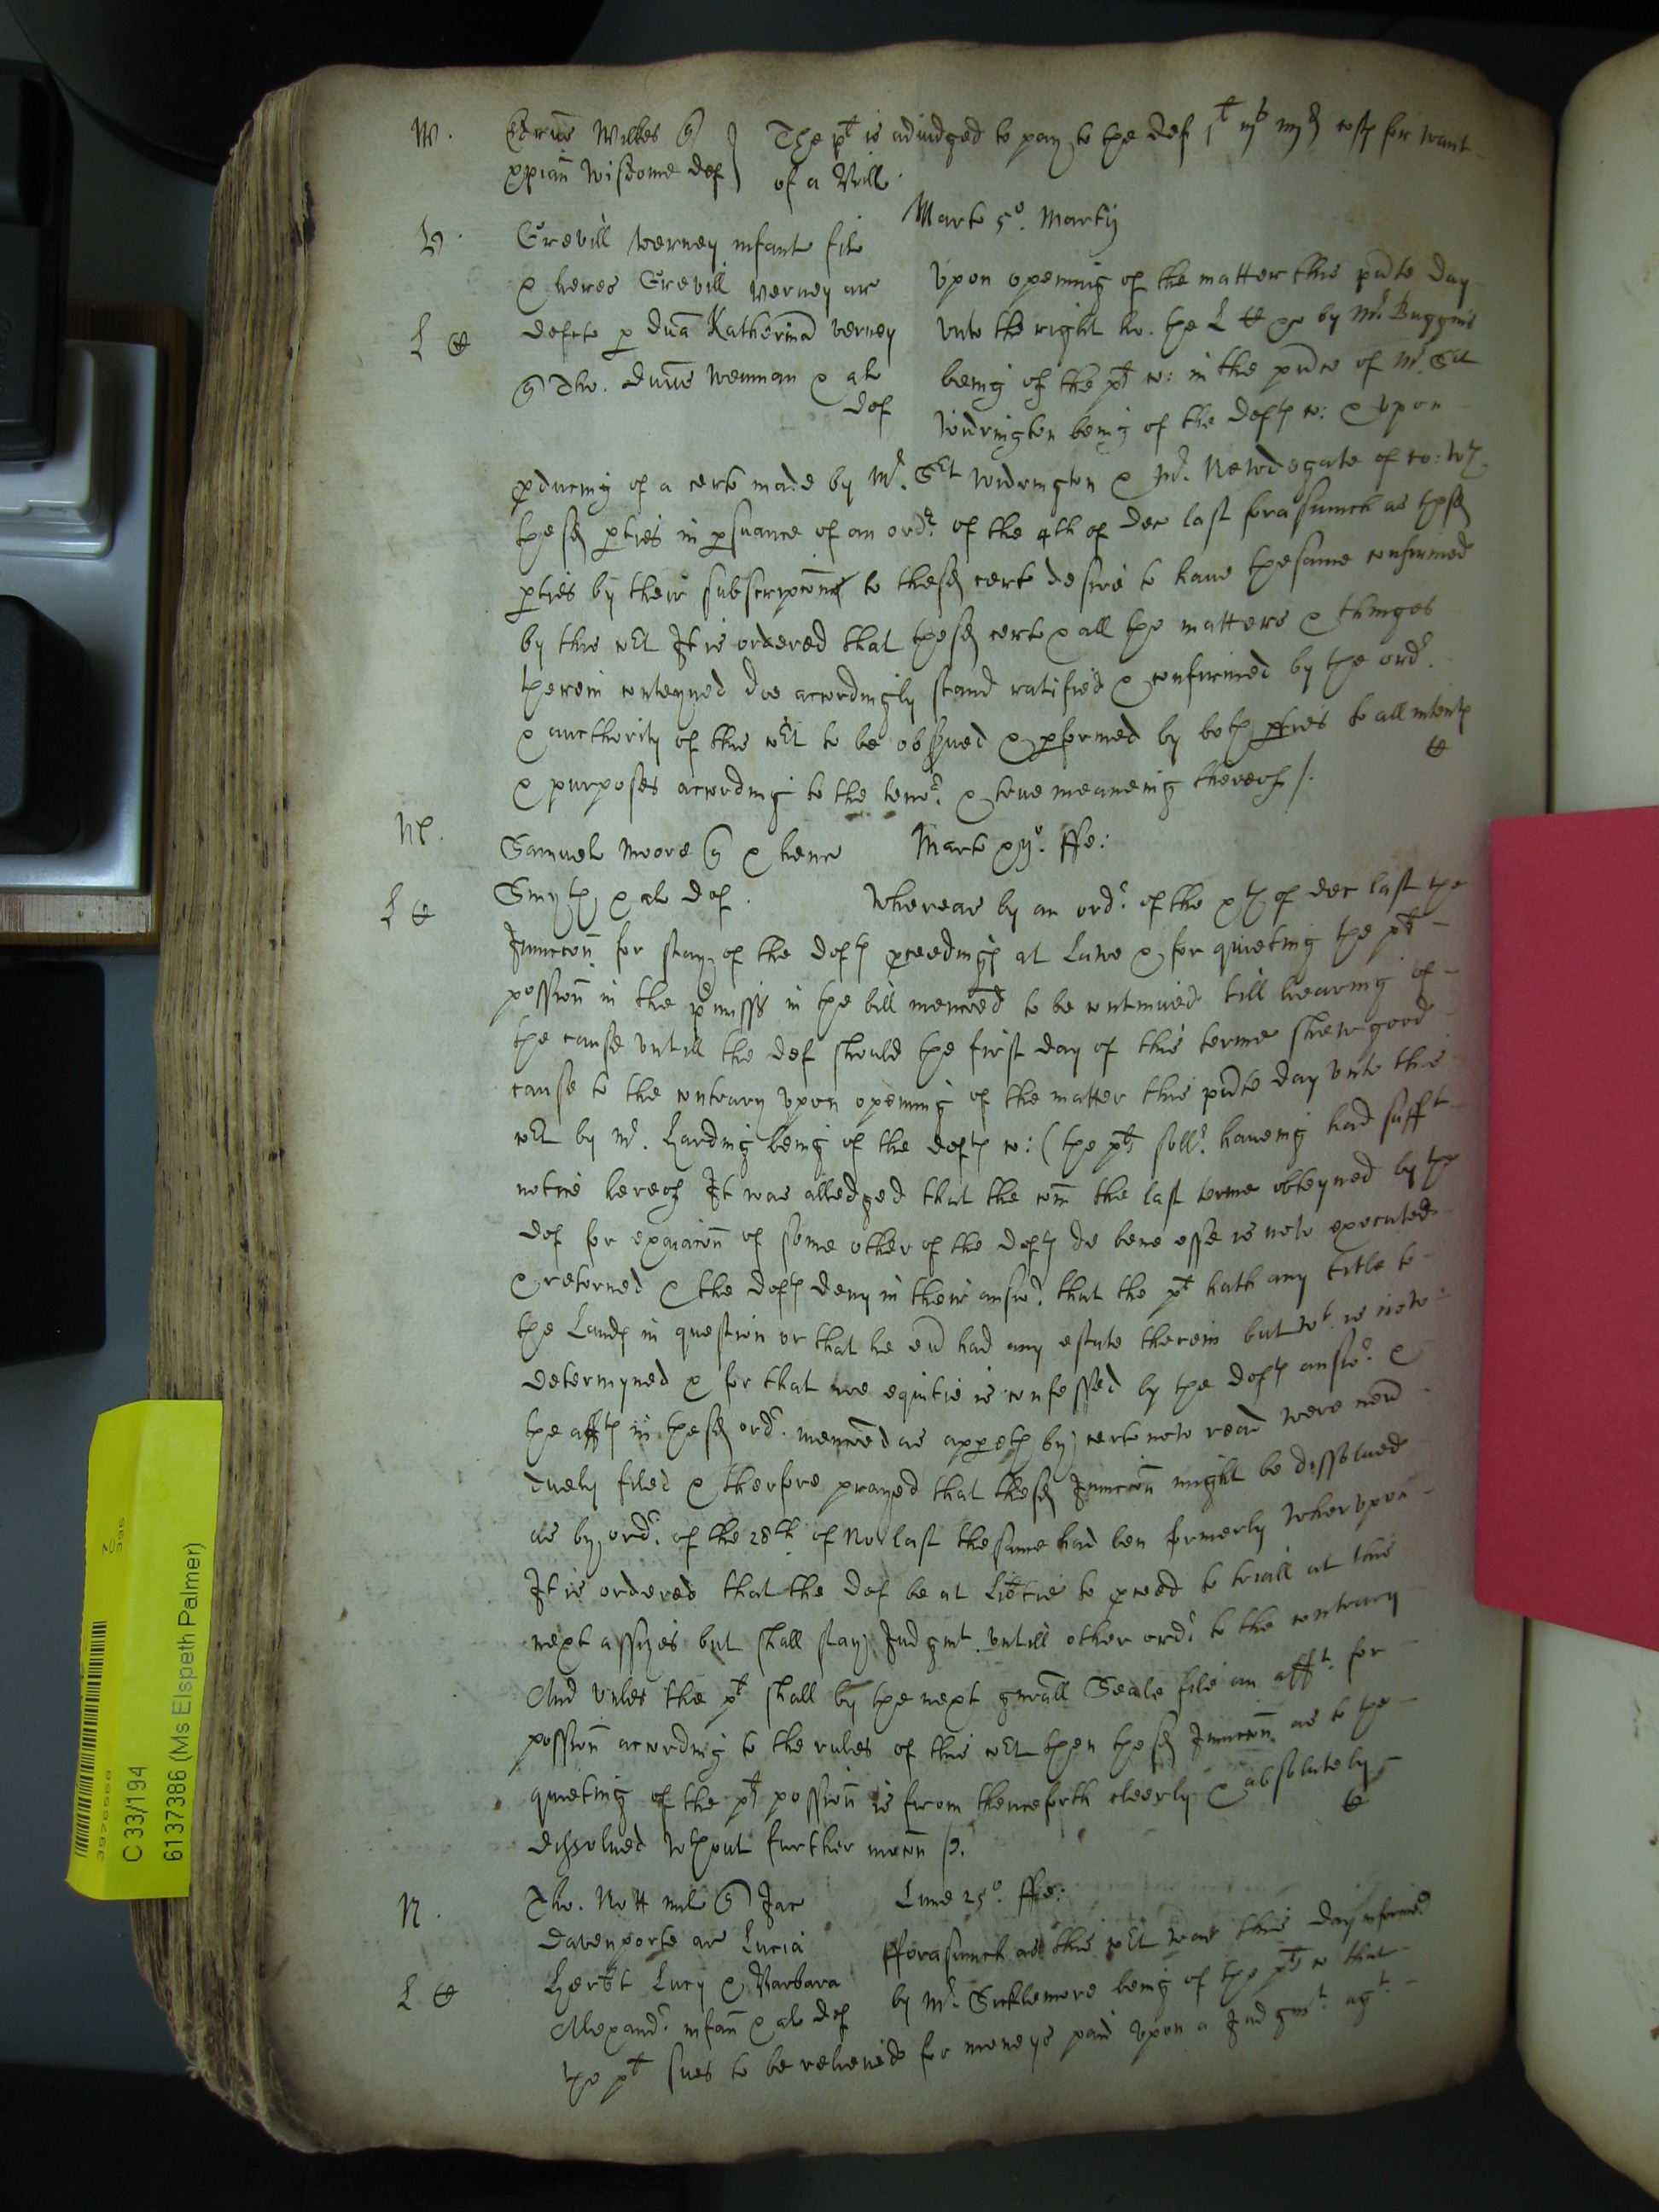 W. Wilkes q The plt is adiudged to pay to the def costs for want
xpian Wisdome def of a Bill
Marte 5o. Martij
V. Grevill Verney infant fil
& heres Grevill Verney ar Vpon opening of the matter this pnte day
L C defcte p dnā Katherinā Verney vnto the right ho. the L C by Mr. Buggins
q Tho. Wenman & al being of the plts co: in the pnce of Mr. Sct
def Widrington being of the defts co: & vpon
pduceing of a certe made by Mr. Sct Widrington & Mr. Newdegate of co: wth
the sd pties in psuance of an ordr. of the 4th of Dec last forasmuch as the sd
pties by their subscripcōns to the sd cert desire to haue the same confirmed
by this cot It is ordered that the sd certe & all the matters & thinges
therein conteyned doe accordingly stand ratified & confirmed by the ordr.
& aucthority of this cot to be obserued & pformed by both pties to all intents
& purposes according to the tenor. & true meaneing thereof /.
M. Samuel Moore q & henr Marte ffe:
L C Smyth & al def. Whereas by an ordr. of the xth of Dec last the
Iniunccōn for stay of the defts pceedings at Lawe & for quieting the plts
possion in the pmisses in the bill menconed to be continued till heareing of
the cause vntill the def should the first day of this terme shew good
cause to the contrary vpon opening of the matter this pnte day vnto this
cot by Mr. Harding being of the defts co: (the plts sollr. haueing had sufft
notice hereof It was alledged that the com the last terme obteyned by the
def for exaiacōn of some other of the defts de bene esse is now executed
& retorned & the defts deny in their answr. that the plt hath any title to
the Lands in question or that he eu had any estate therein but wt. is now
determyned & for that noe equitie is confessed by the defts answr. &
the affts in the sd ordr. menconed as appeth by certe now read were neu
duely filed & therfore prayed that the sd Iniunccōn might be dissolued
as by ordr. of the 28th of Nov last the same had ben formerly Whervpon
It is ordered that the def be at Libtie to pceed to triall at this
next assizes but shall stay Iudgmt. vntill other ordr. to the contrary
And vnles the plt shall by the next gnrall Seale file an afft. for
possion according to the rules of this cot then the sd Iniunccōn as to the
quieting of the plts possion is from thenceforth cleerly & absolutely
dissolued wthout further mocōn /.
N. Tho. Nott mil q Jac Lune 25o. ffe:
Davenporte ar Lucia fforasmuch as this cot was this day informed
L C Herbt Lucy & Barbara by Mr. Sicklemore being of the plts co that
Alexandr. infan & al def
the plt sues to be releiued for moneys paid vpon a Iudgmt. agt.
C 33/194
61373386 (Ms Elspeth Palmer)